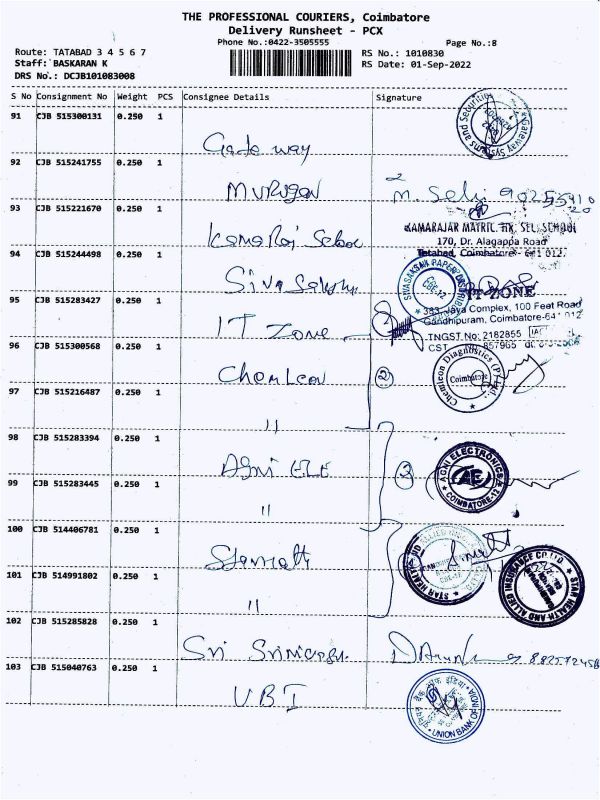 THE PROFESSIONAL COURIERS, Coimbatore
Delivery Runsheet - PCX
Phone No.:0422-3505555
Page No.:8
Route: TATABAD 3 4 5 6 7
RS No.: 1010830
Staff: BASKARAN K
RS Date: 01-Sep-2022
DRS No.: DCJB101083008
S No Consignment No Weight PCS Consignee Details Signature
91 CJB 515300131 0.250 1
Gate way
Gateway Systems and Securities
92 CJB 515241755 0.250 1
Murugan
93 CJB 515221670 0.250 1
Kamaraj School
KAMARAJAR MATRIC. HR. SEC. SCHOOL
170, Dr. Alagappa Road
Tatabad, Coimbatore - 641 012.
94 CJB 515244498 0.250 1
95 CJB 515283427 0.250 1
IT Zone
IT ZONE
383, Jaya Complex, 100 Feet Road
Gandhipuram, Coimbatore-641 012
TNGST No: 2182855
CST 857965
96 CJB 515300568 0.250 1
Chemleon
2
Chemleon Diagnostics (P) Ltd.
Coimbatore
97 CJB 515216487 0.250 1
"
98 CJB 515283394 0.250 1
Agni ELE
AGNI ELECTRONICS
AE
COIMBATORE-12
99 CJB 515283445 0.250 1
"
3
100 CJB 514406781 0.250 1
101 CJB 514991802 0.250 1
"
STAR HEALTH AND ALLIED INSURANCE CO LTD
102 CJB 515285828 0.250 1
Sri
103 CJB 515040763 0.250 1
UBI
UNION BANK OF INDIA